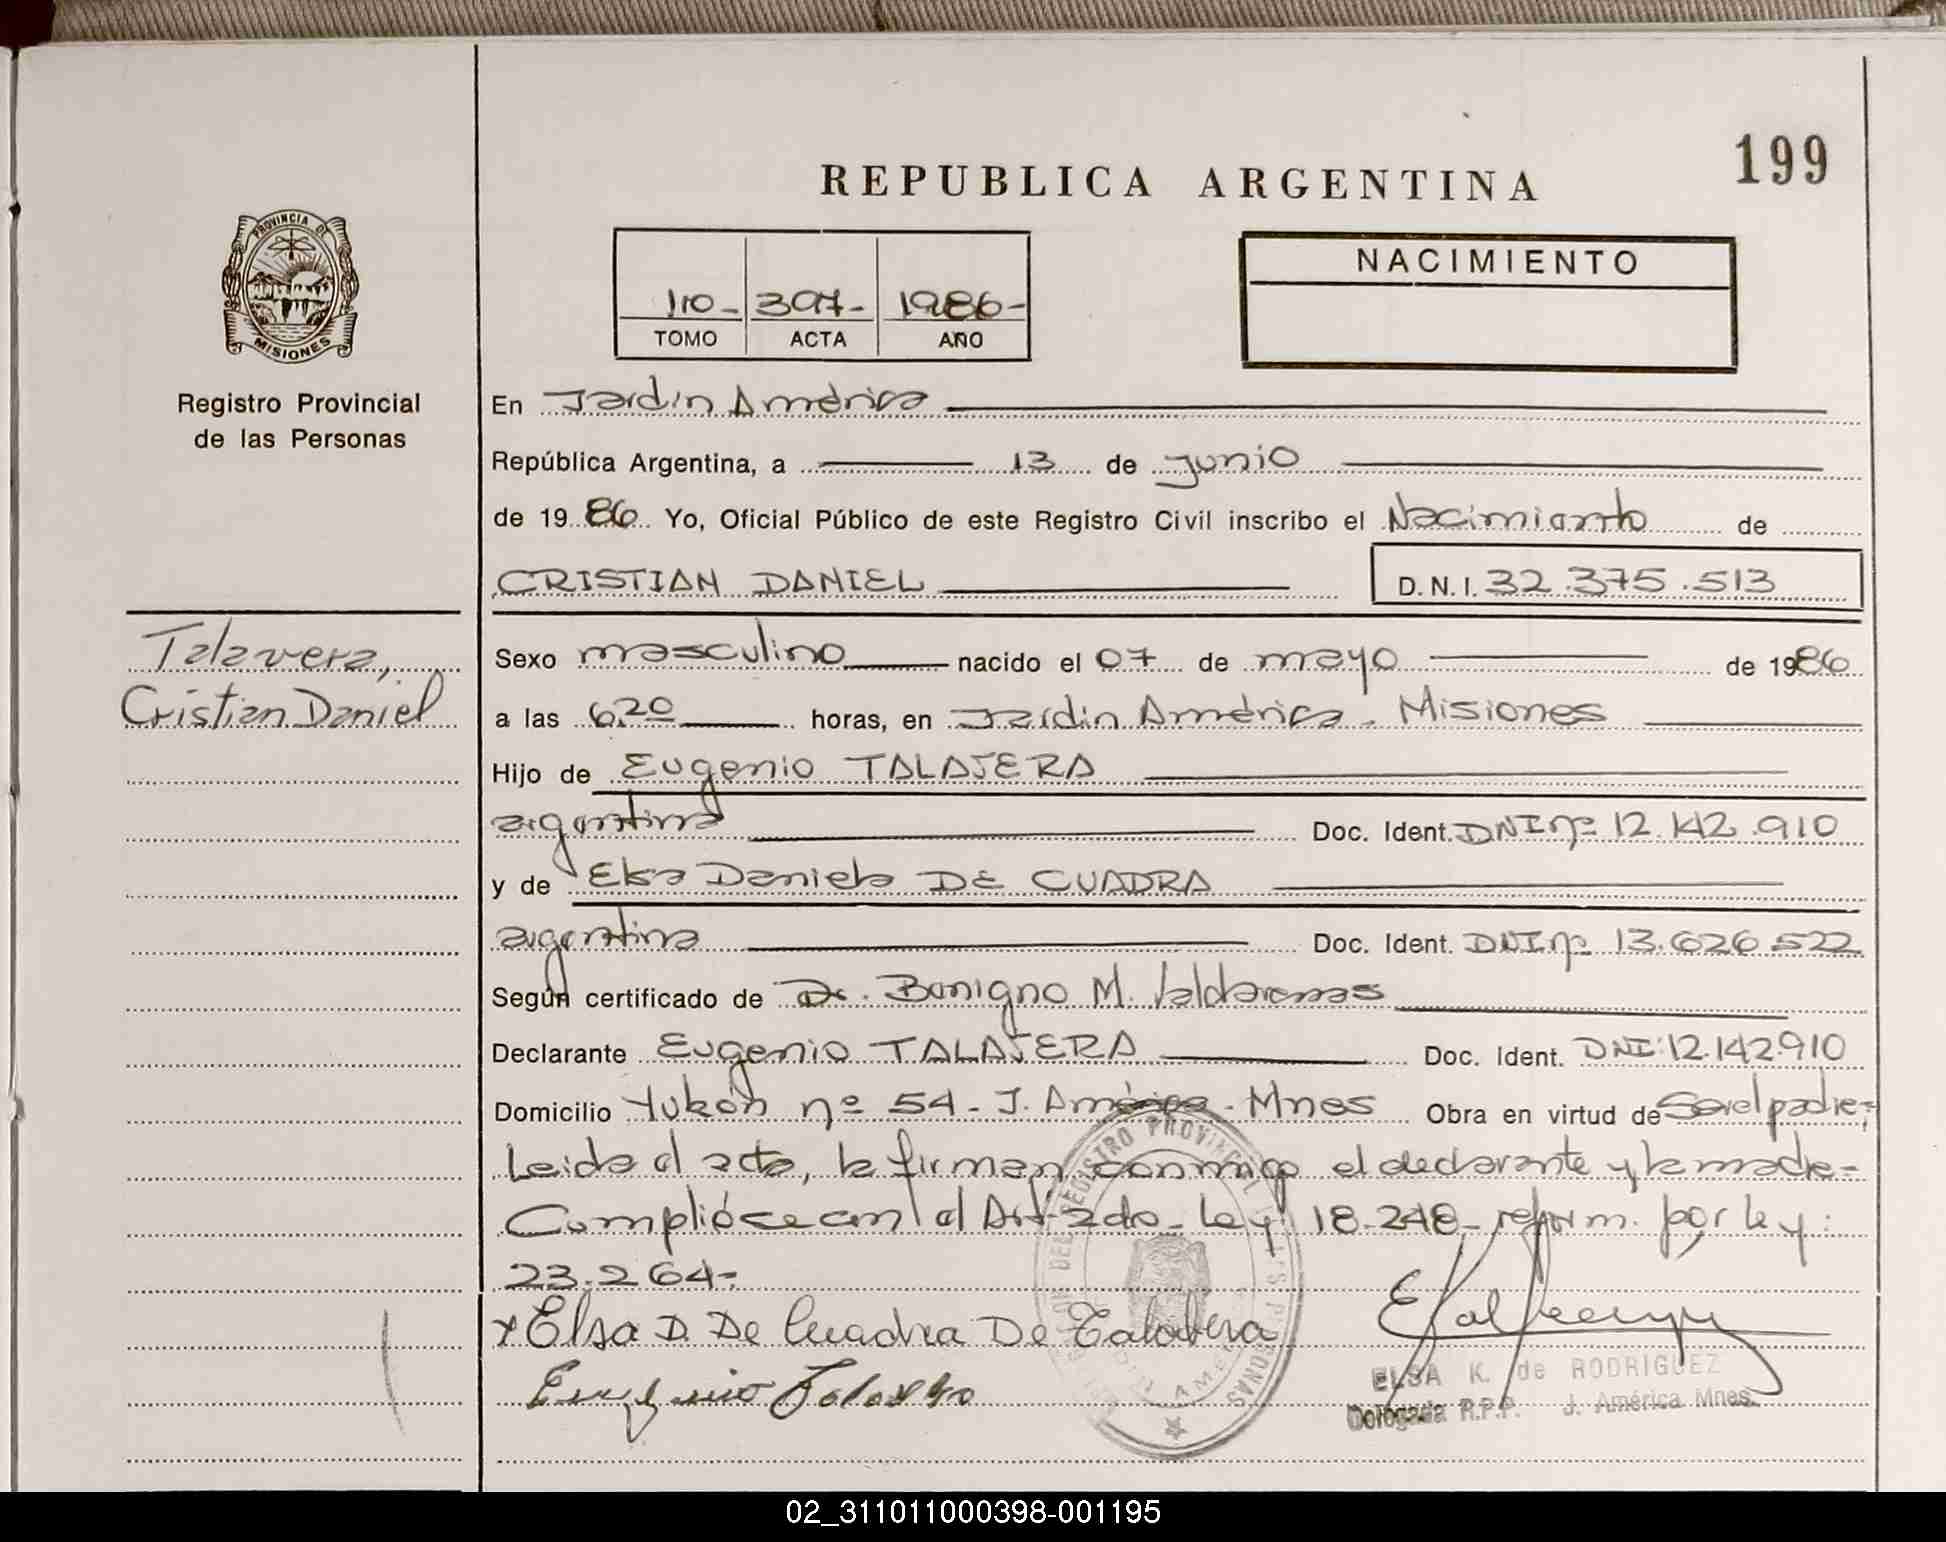 199
REPUBLICA ARGENTINA
PROVINCIA DE
MISIONES
Registro Provincial
de las Personas
110- 397- 1986-
TOMO ACTA AÑO
NACIMIENTO
En Jardín América
República Argentina, a 13 de junio
de 1986 Yo, Oficial Público de este Registro Civil inscribo el Nacimiento de
CRISTIAN DANIEL D.N.I. 32.375.513
Talavera,
Cristian Daniel
Sexo masculino nacido el 07 de mayo de 1986
a las 6,20 horas, en Jardín América - Misiones
Hijo de Eugenio TALAVERA
argentina Doc. Ident. DNI nº 12.142.910
y de Elsa Daniela DE CUADRA
argentina Doc. Ident. DNI nº 13.626.522
Según certificado de Dr. Benigno M.
Declarante Eugenio TALAVERA Doc. Ident. DNI: 12.142.910
Domicilio Yukón nº 54 - J. América - Mnes Obra en virtud de Ser el padre-
Leida el acta, la firman conmigo el declarante y la madre-
Cumplióse con el Art 2do- Ley 18.248- reform. por ley:
23.264-
x Elsa D. De Cuadra De Talavera
Eugenio
ELSA K. de RODRIGUEZ
Delegada R.P.P. J. América Mnes.
02_311011000398-001195